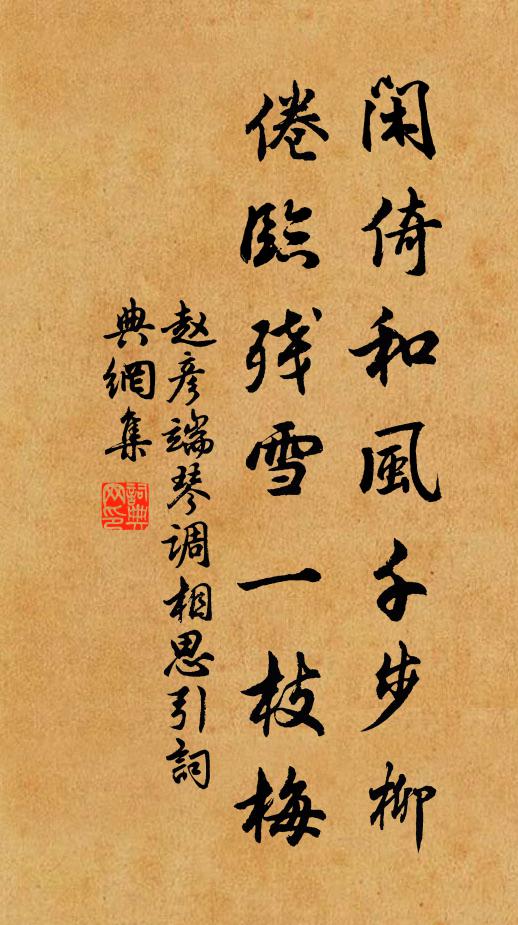 閑倚和風千步柳
倦臨残雪一枝梅
赵彦端琴调相思引詞
典網集
詞典
网印